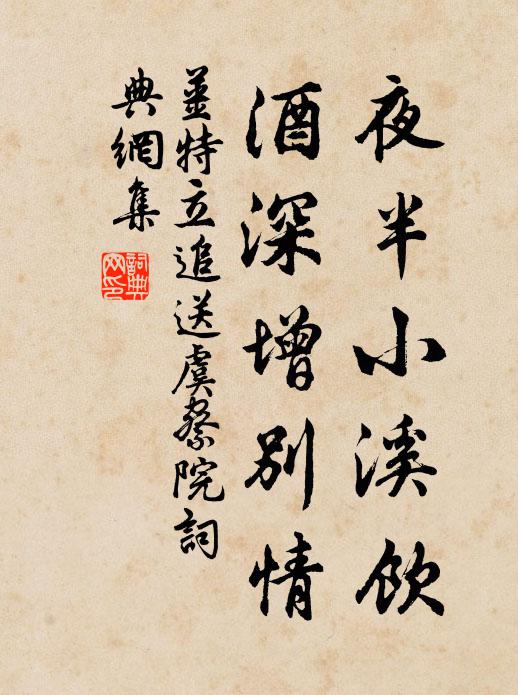 夜半小溪飲
酒深增別情
姜特立追送虞察院詞
典網集
詞典网印